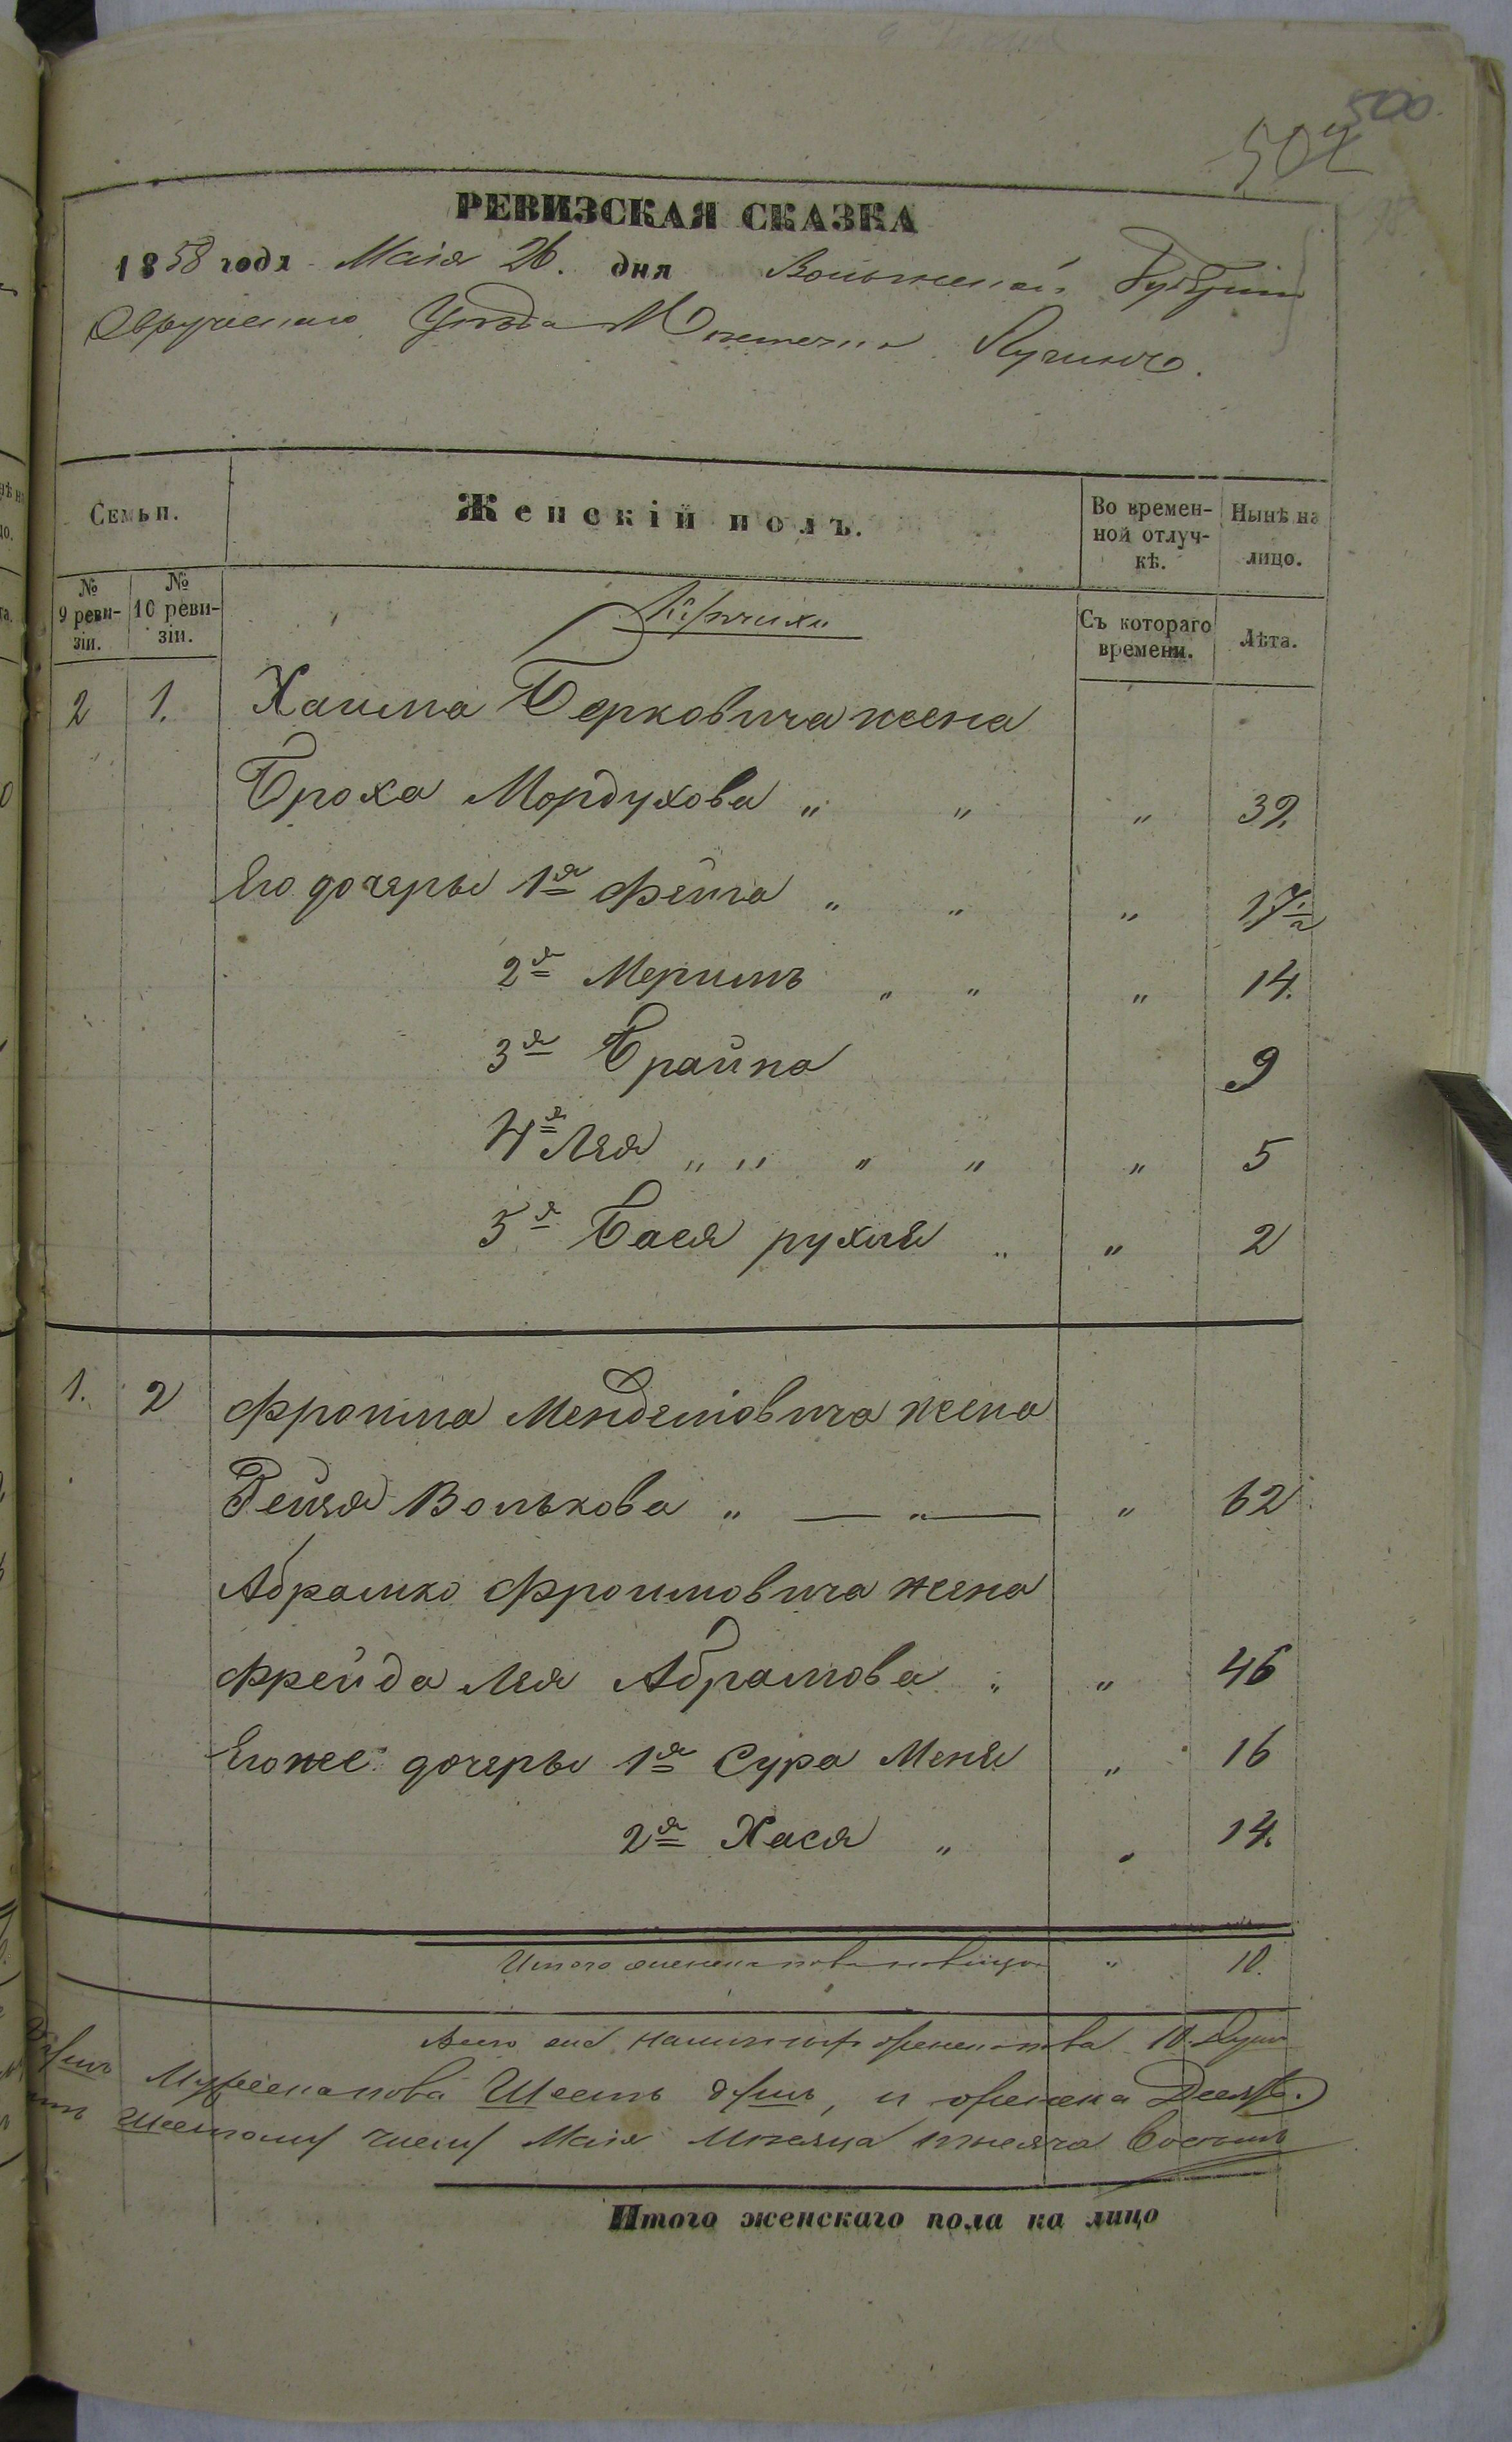 500.
502
РЕВИЗСКАЯ СКАЗКА
1858 года Маія 26. дня Волынской Губерніи
Овручскаго Уѣзда Мѣстечка Лугинъ.
Семьи.
Женскій полъ.
Во временной отлучкѣ.
Нынѣ на лицо.
№ 9 ревизіи.
№ 10 ревизіи.
Съ котораго времени.
Лѣта.
2 1. Хаима Берковича жена
Броха Мордухова „ „ „ 39.
Его дочеры 1я Фейга „ „ „ 17½
2я Меримъ „ „ „ 14.
3я Брайна 9
4я Лея „ „ „ „ „ 5
5я Бася рухля „ „ 2
1. 2 Фроима Менделіовича жена
Рейзя Волькова „ — „ — „ 62
Абрамко Фроимовича жена
Фрейда Лея Абрамова „ „ 46
Егоже дочеры 1я Сура Меня „ 16
2я Хася „ „ 14.
Итого женска пола на лицо „ 10.
Всего на женска пола 10. душъ
Мужеска пола Шесть душъ, и женска Десять.
Шестому числу Маія Мѣсяца тысяча восемь
Итого женскаго пола на лицо